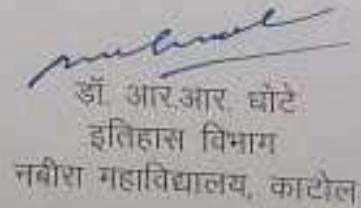 डॉ. आर.आर. घोटे
इतिहास विभाग
नबीरा महाविद्यालय, काटोल